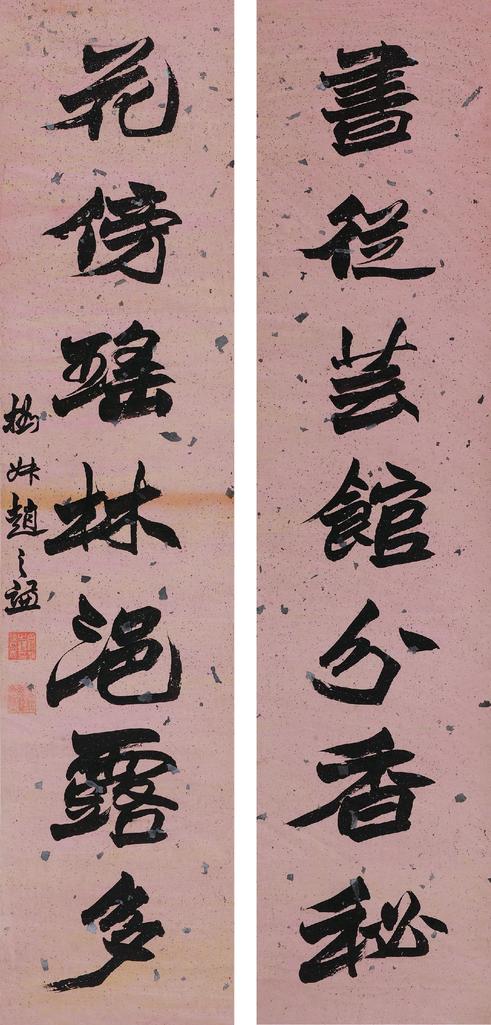 書從芸館分香秘
花傍瑤林浥露多
趙之謙